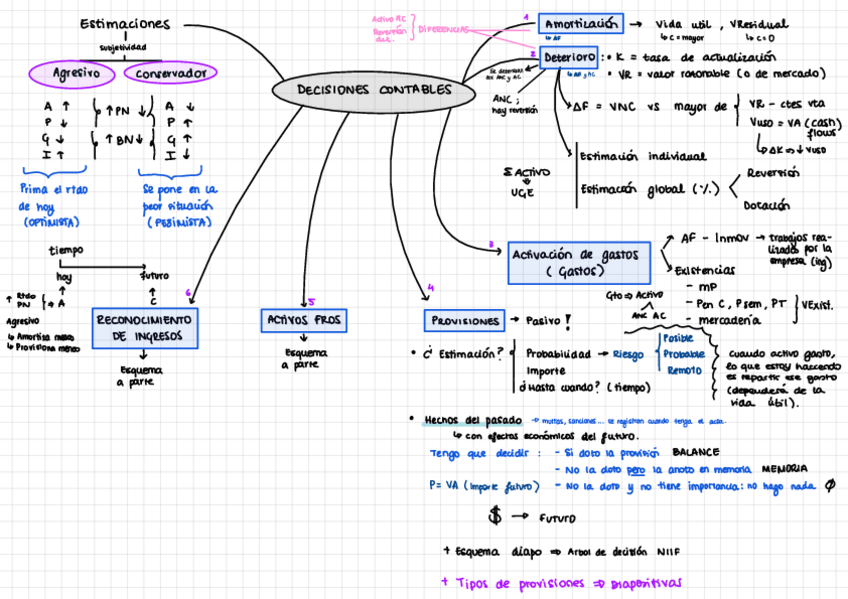 Estimaciones
subjetividad
Agresivo
conservador
A ↑
P ↓
G ↓
I ↑
↑ PN ↓
↑ BN ↓
A ↓
P ↑
G ↑
I ↓
Prima el rtdo
de hoy
(OPTIMISTA)
Se pone en la
peor situación
(PESIMISTA)
DECISIONES CONTABLES
DIFERENCIAS
1
Amortización → Vida util, VResidual
↳ c = mayor
↳ c = 0
2
Deterioro : • K = tasa de actualización
• VR = valor razonable (o de mercado)
ANC;
hay reversión
ΔF = VNC vs mayor de
VR - ctes vta
Vuso = VA (cash
flows
↳ ΔK ⇒ ↓ Vuso
Estimación individual
Σ ACTIVO
UGE
Estimación global (%)
Reversión
Dotación
3
Activación de gastos
(Gastos)
AF - Inmov → trabajos rea-
lizados por la
empresa (ing)
Existencias
- mP
- Pen C, Psem, PT
- mercadería
VExist.
Gto ⇒ Activo
ANC AC
cuando activo gasto,
lo que estoy haciendo
es repartir ese gasto
(dependerá de la
vida útil).
4
PROVISIONES → Pasivo!
• ¿Estimación?
Probabilidad → Riesgo
Importe
¿Hasta cuando? (tiempo)
Posible
Probable
Remoto
• Hechos del pasado → multas, sanciones... se registran cuando tenga el acta.
↳ con efectos económicos del futuro.
Tengo que decidir : - Si doto la provisión BALANCE
- No la doto pero la anoto en memoria MEMORIA
P = VA (Importe futuro) - No la doto y no tiene importancia: no hago nada ∅
$ → FUTURO
+ Esquema diapo ⇒ Arbol de decisión NIIF
+ Tipos de provisiones ⇒ Diapositivas
5
ACTIVOS FROS
Esquema
a parte
6
RECONOCIMIENTO
DE INGRESOS
Esquema
a parte
tiempo
hoy
futuro
↑ Rtdo
PN
A
C
Agresivo
↳ Amortiza menos
↳ Provisiona menos